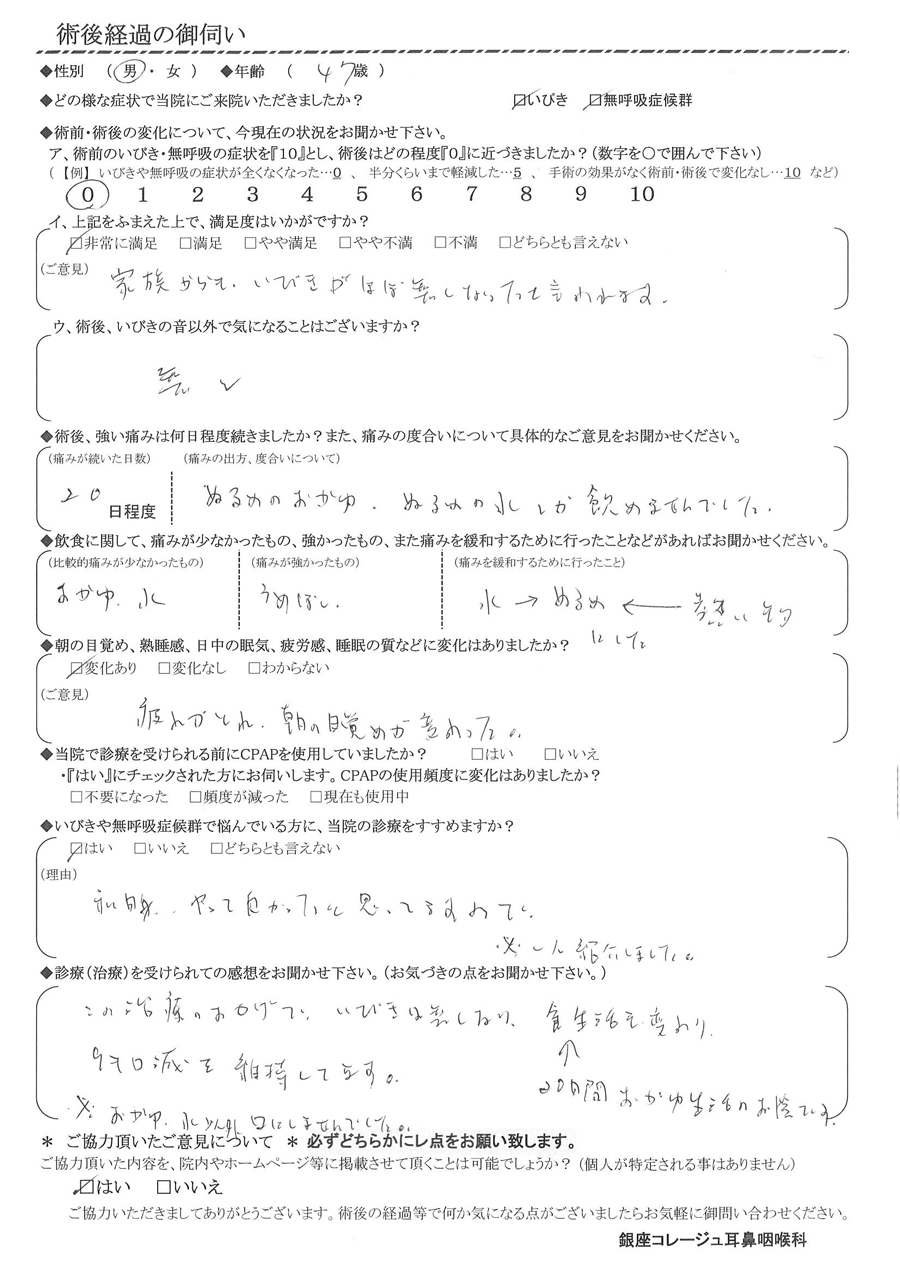 術後経過の御伺い
◆性別 （ 男 ・ 女 ） ◆年齢 （ 47歳 ）
◆どの様な症状で当院にご来院いただきましたか？ ☑いびき ☑無呼吸症候群
◆術前・術後の変化について、今現在の状況をお聞かせ下さい。
ア、術前のいびき・無呼吸の症状を『10』とし、術後はどの程度『0』に近づきましたか？（数字を〇で囲んで下さい）
（【例】 いびきや無呼吸の症状が全くなくなった…0 、 半分くらいまで軽減した…5 、 手術の効果がなく術前・術後で変化なし…10 など）
0 1 2 3 4 5 6 7 8 9 10
イ、上記をふまえた上で、満足度はいかがですか？
☑非常に満足 □満足 □やや満足 □やや不満 □不満 □どちらとも言えない
（ご意見）
家族からも、いびきがほぼ無しなったと言われます。
ウ、術後、いびきの音以外で気になることはございますか？
無し
◆術後、強い痛みは何日程度続きましたか？また、痛みの度合いについて具体的なご意見をお聞かせください。
（痛みが続いた日数） （痛みの出方、度合いについて）
20日程度 ぬるめのおかゆ、ぬるめの水しか飲めませんでした。
◆飲食に関して、痛みが少なかったもの、強かったもの、また痛みを緩和するために行ったことなどがあればお聞かせください。
（比較的痛みが少なかったもの） （痛みが強かったもの） （痛みを緩和するために行ったこと）
おかゆ、水 うめぼし、 水 → ぬるめ ← 熱い物
にした
◆朝の目覚め、熟睡感、日中の眠気、疲労感、睡眠の質などに変化はありましたか？
☑変化あり □変化なし □わからない
（ご意見）
疲れがとれ、朝の目覚めが変わった。
◆当院で診療を受けられる前にCPAPを使用していましたか？ □はい □いいえ
・『はい』にチェックされた方にお伺いします。CPAPの使用頻度に変化はありましたか？
□不要になった □頻度が減った □現在も使用中
◆いびきや無呼吸症候群で悩んでいる方に、当院の診療をすすめますか？
☑はい □いいえ □どちらとも言えない
（理由）
私自身、やって良かったと思ってますので、
紹介しました。
◆診療（治療）を受けられての感想をお聞かせ下さい。（お気づきの点をお聞かせ下さい。）
この治療のおかげで、いびきは無しなり、食生活も変わり、
9キロ減を維持してます。 ↑
20日間おかゆ生活のお陰です
※おかゆ、水以外口にしませんでした。
＊ ご協力頂いたご意見について ＊ 必ずどちらかにレ点をお願い致します。
ご協力頂いた内容を、院内やホームページ等に掲載させて頂くことは可能でしょうか？（個人が特定される事はありません）
☑はい □いいえ
ご協力いただきましてありがとうございます。術後の経過等で何か気になる点がございましたらお気軽に御問い合わせください。
銀座コレージュ耳鼻咽喉科